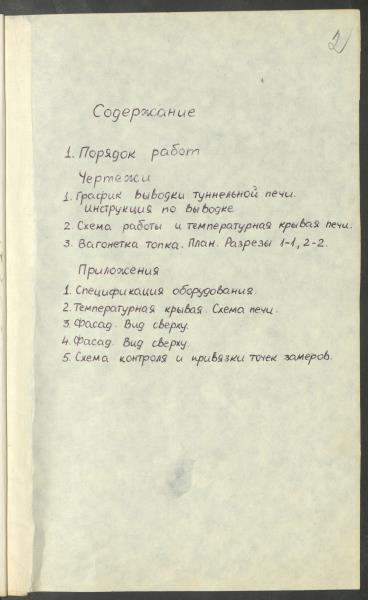 2
Содержание
1. Порядок работ
Чертежи
1. График выводки туннельной печи.
Инструкция по выводке
2. Схема работы и температурная кривая печи.
3. Вагонетка топка. План. Разрезы 1-1, 2-2.
Приложения
1. Спецификация оборудования.
2. Температурная кривая. Схема печи.
3. Фасад. Вид сверху.
4. Фасад. Вид сверху.
5. Схема контроля и привязки точек замеров.